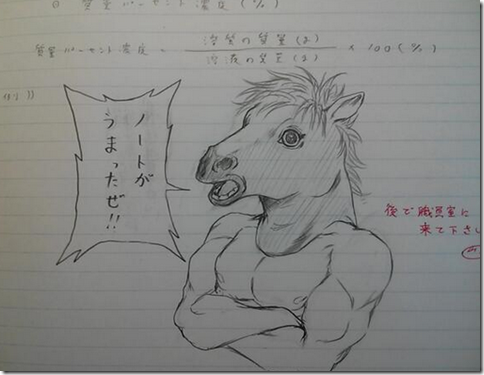 質量パーセント濃度 (%)
質量パーセント濃度 = 溶質の質量(g) / 溶液の質量(g) × 100(%)
ノートが
うまったぜ!!
後で職員室に
来て下さい